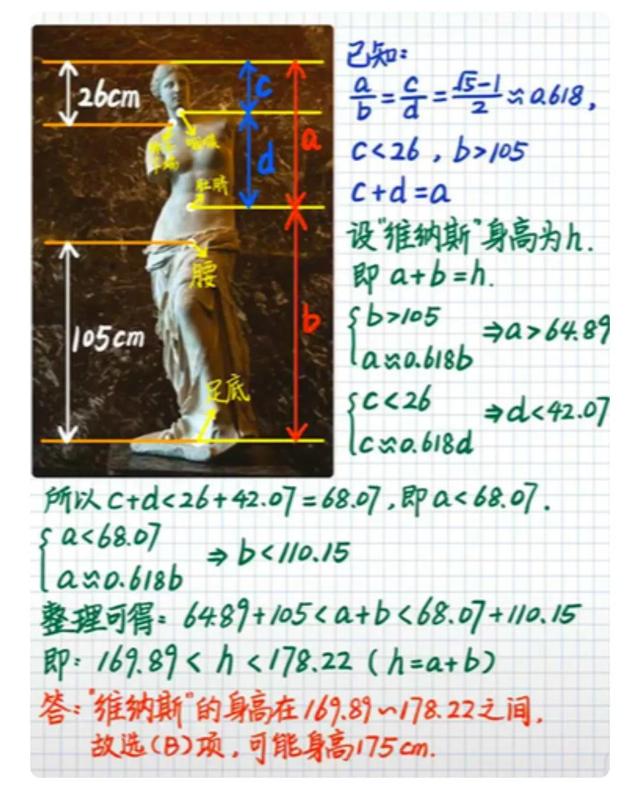 26cm
c
a
d
咽喉
肚脐
腰
b
105cm
足底
已知:
a/b = c/d = (√5-1)/2 ≈ 0.618,
c<26 , b>105
c+d=a
设"维纳斯"身高为h.
即 a+b=h.
{ b>105
a≈0.618b ⇒a>64.89
{ c<26
c≈0.618d ⇒d<42.07
所以 c+d<26+42.07=68.07,即a<68.07.
{ a<68.07
a≈0.618b ⇒ b<110.15
整理可得: 64.89+105<a+b<68.07+110.15
即: 169.89< h <178.22 (h=a+b)
答:"维纳斯"的身高在169.89~178.22之间,
故选(B)项,可能身高175cm.